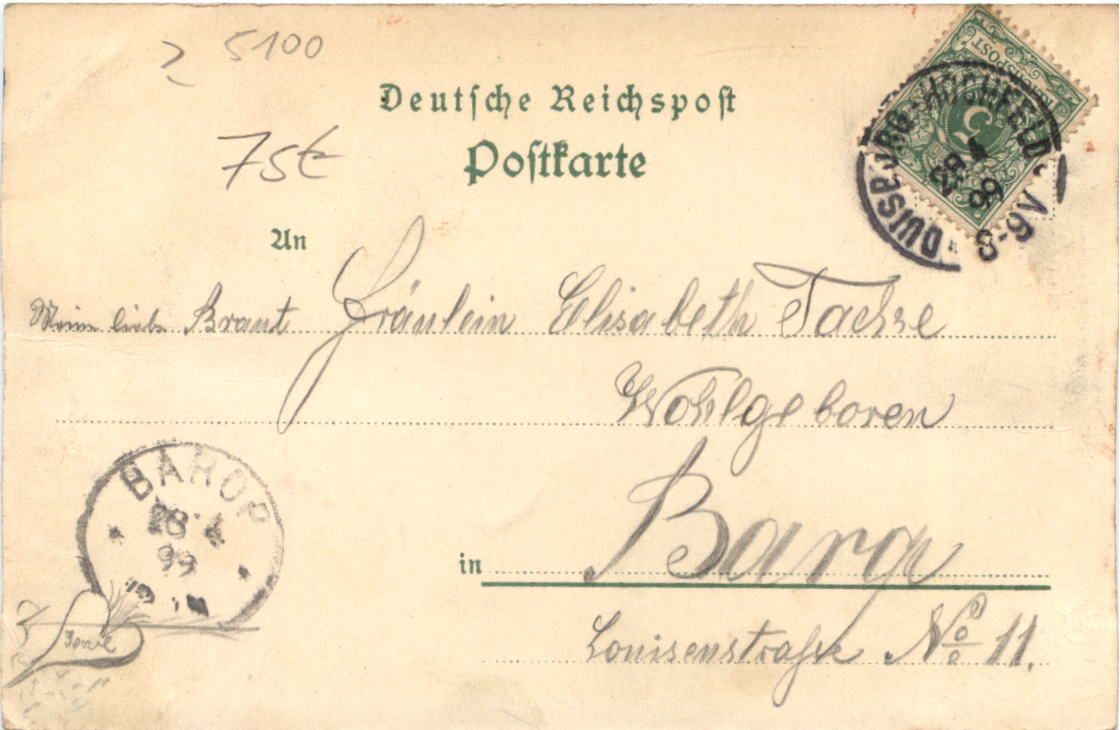 5100
Deutsche Reichspost
75€
Postkarte
5
DUISBURG-HOCHFELD
28 4
99
8-9V
An
Meine liebe Braut Fräulein Elisabeth
Wohlgeboren
BAROP
28 4
99
in Barop
Louisenstraße No 11.